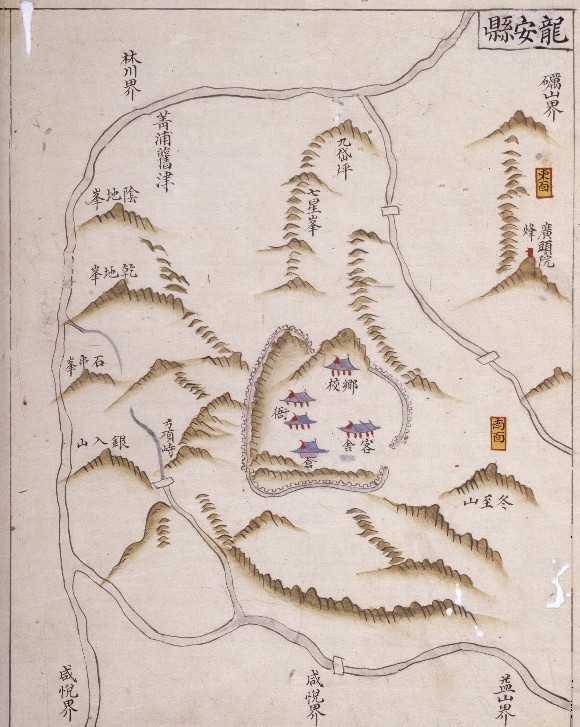 龍安縣
礪山界
東面
廣頭院
烽
林川界
菁浦舊津
九岱坪
七星峯
陰地峯
乾地峯
石串峯
銀入山
鄕校
衙
客舍
倉
南面
冬至山
咸悅界
咸悅界
益山界